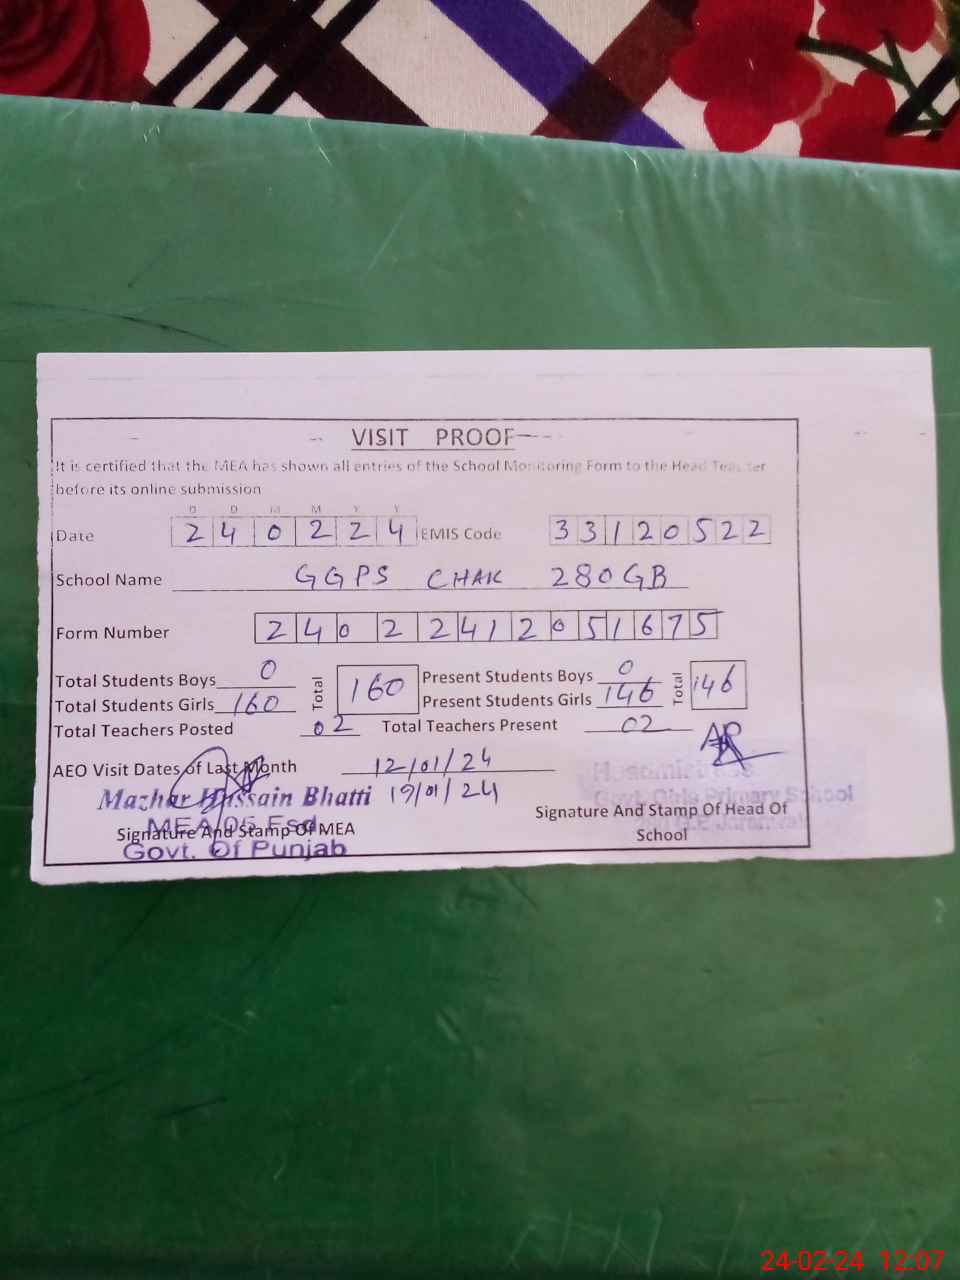 VISIT PROOF
It is certified that the MEA has shown all entries of the School Monitoring Form to the Head Teacher
before its online submission
D D M M Y Y
Date 2 4 0 2 2 4 EMIS Code 3 3 1 2 0 5 2 2
School Name GGPS CHAK 280 GB
Form Number 2 4 0 2 2 4 1 2 0 5 1 6 7 5
Total Students Boys 0 Total 160 Present Students Boys 0 Total 146
Total Students Girls 160 Present Students Girls 146
Total Teachers Posted 02 Total Teachers Present 02
AEO Visit Dates of Last Month 12/01/24
19/01/24
Mazhar Hussain Bhatti
MEA 05 Fsd
Govt. Of Punjab
Signature And Stamp Of MEA
Headmistress
Govt. Girls Primary School
Signature And Stamp Of Head Of
School
24-02-24 12:07